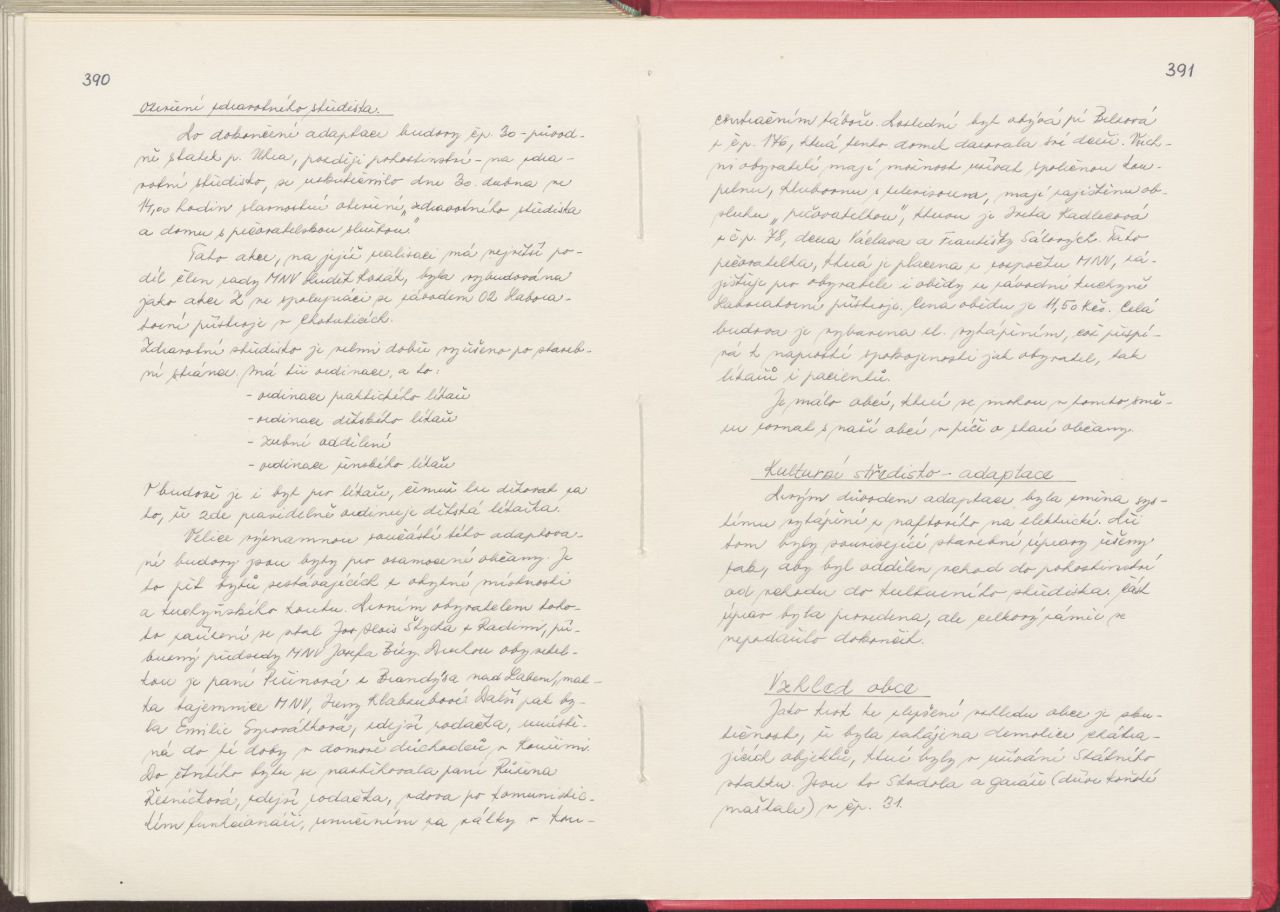 390
Otevření zdravotního střediska.
Po dokončení adaptace budovy čp. 30 - původ-
ně statek p. Uhra, později pohostinství - na zdra-
votní středisko, se uskutečnilo dne 30. dubna ve
14,00 hodin slavnostní otevření „zdravotního střediska
a domu s pečovatelskou službou."
Tato akce, na jejíž realisaci má největší po-
díl člen rady MNV Luděk Kozák, byla vybudována
jako akce Z ve spolupráci se závodem 02 Labora-
torní přístroje v Chotuticích.
Zdravotní středisko je velmi dobře vyřešeno po staveb-
ní stránce. Má tři ordinace, a to:
- ordinace praktického lékaře
- ordinace dětského lékaře
- zubní oddělení
- ordinace ženského lékaře
V budově je i byt pro lékaře, čemuž lze děkovat za
to, že zde pravidelně ordinuje dětská lékařka.
Velice významnou součástí této adaptova-
né budovy jsou byty pro osamocené občany. Je
to pět bytů sestávajících z obytné místnosti
a kuchyňského koutu. Prvním obyvatelem toho-
to zařízení se stal Jar. Alois Štycha z Radimi, pří-
buzný předsedy MNV Josefa Bízy. Druhou obyvatel-
kou je paní Pečinová z Brandýsa nad Labem, mat-
ka tajemnice MNV, Jiřiny Klabzubové. Další pak by-
la Emilie Syrovátková, zdejší rodačka, umístě-
ná do té doby v domově důchodců v Kouřimi.
Do čtvrtého bytu se nastěhovala paní Růžena
Řezníčková, zdejší rodačka, vdova po komunistic-
kém funkcionáři, umučeném za války v kon-
391
centračním táboře. Poslední byt obývá pí Bílková
z č.p. 176, která tento domek darovala své dceři. Všich-
ni obyvatelé mají možnost užívat společnou kou-
pelnu, klubovnu s televisorem, mají zajištěnu ob-
sluhu „pečovatelkou", kterou je Iveta Kadlecová
z č.p. 78, dcera Václava a Františky Sálových. Tato
pečovatelka, která je placena z rozpočtu MNV, za-
jišťuje pro obyvatele i obědy ze závodní kuchyně
Laboratorní přístroje. Cena obědu je 11,50 Kčs. Celá
budova je vybavena el. vytápěním, což přispí-
vá k naprosté spokojenosti jak obyvatel, tak
lékařů i pacientů.
Je málo obcí, které se mohou v tomto smě-
ru rovnat s naší obcí v péči o staré občany.
Kulturní středisko - adaptace
Prvým důvodem adaptace byla změna sys-
tému vytápění z naftového na elektrické. Při
tom byly související stavební úpravy řešeny
tak, aby byl oddělen vchod do pohostinství
od vchodu do kulturního střediska. Část
úprav byla provedena, ale celkový záměr se
nepodařilo dokončit.
Vzhled obce
Jako krok ke zlepšení vzhledu obce je sku-
tečnost, že byla zahájena demolice chátra-
jících objektů, které byly v užívání Státního
statku. Jsou to Stodola a garáže (dříve koňské
maštale) v čp. 31.